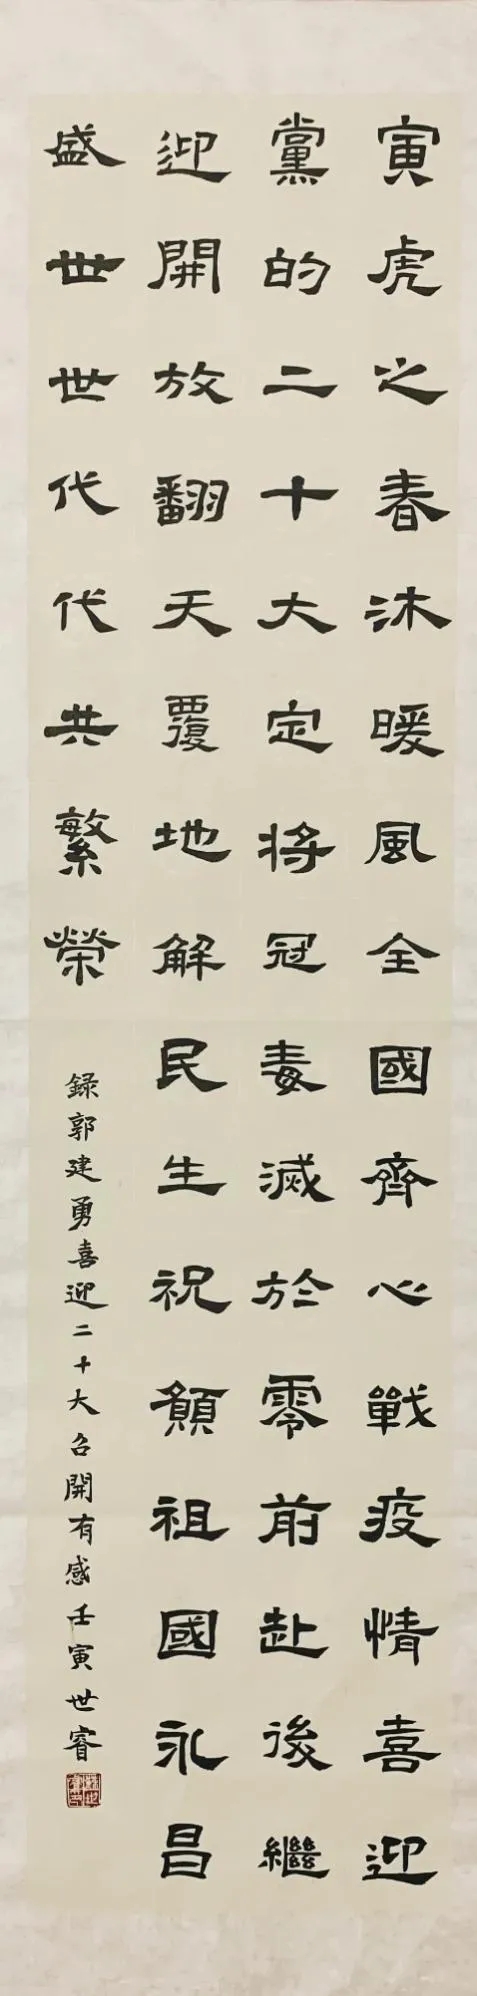 寅虎之春沐暖風全國齊心戰疫情喜迎
黨的二十大定將冠毒滅於零前赴後繼
迎開放翻天覆地解民生祝願祖國永昌
盛世世代代共繁榮
録郭建勇喜迎二十大召開有感壬寅世睿